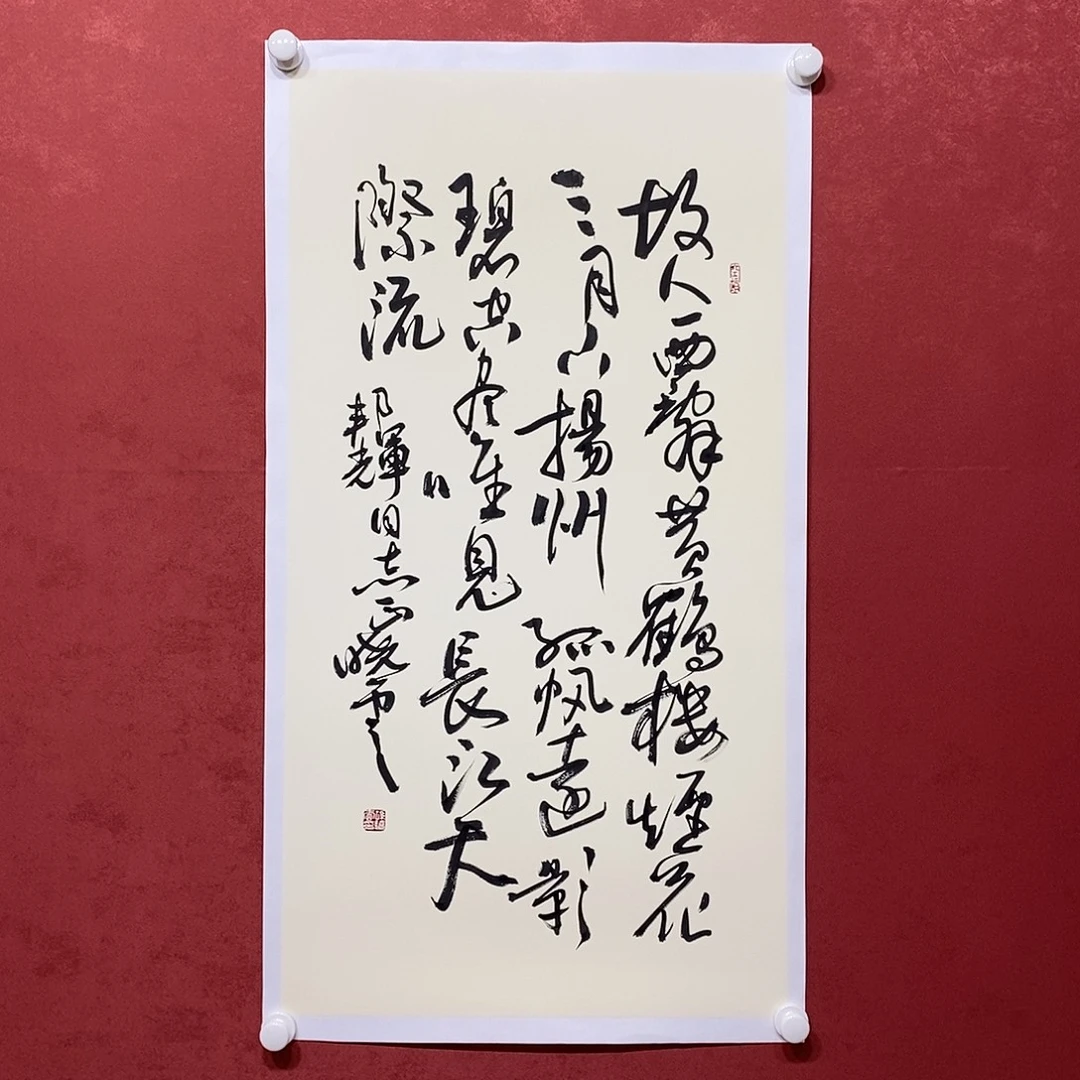 故人西辭黄鶴樓煙花
三月下揚州孤帆遠影
碧空尽唯見長江天
際流
邦輝同志正曉雲